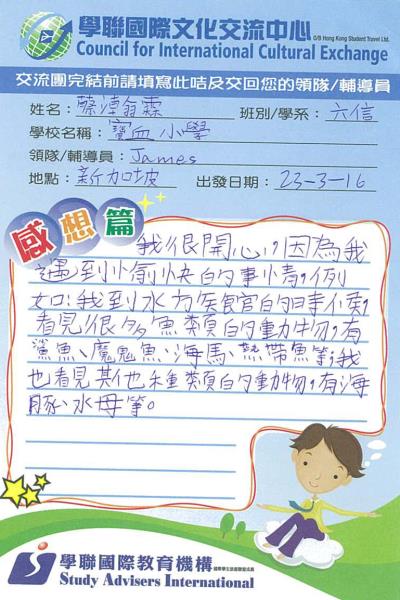 學聯國際文化交流中心 O/B Hong Kong Student Travel Ltd.
Council for International Cultural Exchange
交流團完結前請填寫此咭及交回您的領隊/輔導員
姓名： 班別/學系：六信
學校名稱：寶血小學
領隊/輔導員：James
地點：新加坡 出發日期：23-3-16
感想篇
我很開心，因為我
遇到愉快的事情，例
如：我到水族館的時候，
看見很多魚類的動物，有
鯊魚、魔鬼魚、海馬、熱帶魚等；我
也看見其他種類的動物，有海
豚、水母等。
學聯國際教育機構
Study Advisers International